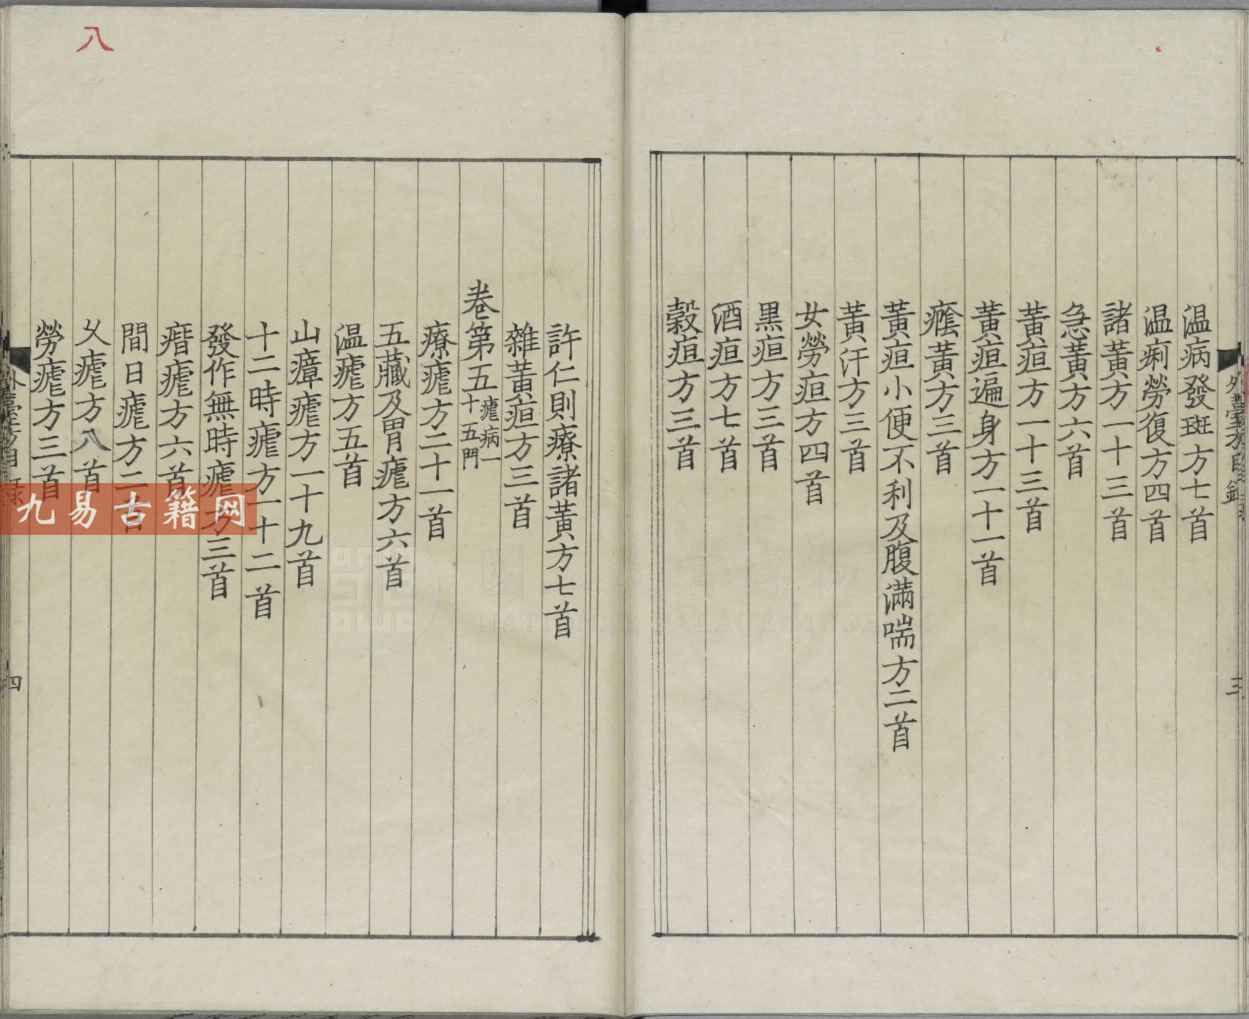 温病發斑方七首
温病勞復方四首
諸黃方一十三首
急黃方六首
黃疸方一十三首
黃疸遍身方一十一首
癊黃方三首
黃疸小便不利及腹滿喘方二首
黃汗方三首
女勞疸方四首
黑疸方三首
酒疸方七首
穀疸方三首
三
許仁則療諸黃方七首
雜黃疸方三首
卷第五瘧病一十五門
療瘧方二十一首
五藏及胃瘧方六首
温瘧方五首
山瘴瘧方一十九首
十二時瘧方一十二首
發作無時瘧方三首
痟瘧方六首
間日瘧方二首
久瘧方八首
勞瘧方三首
四
八
九易古籍网